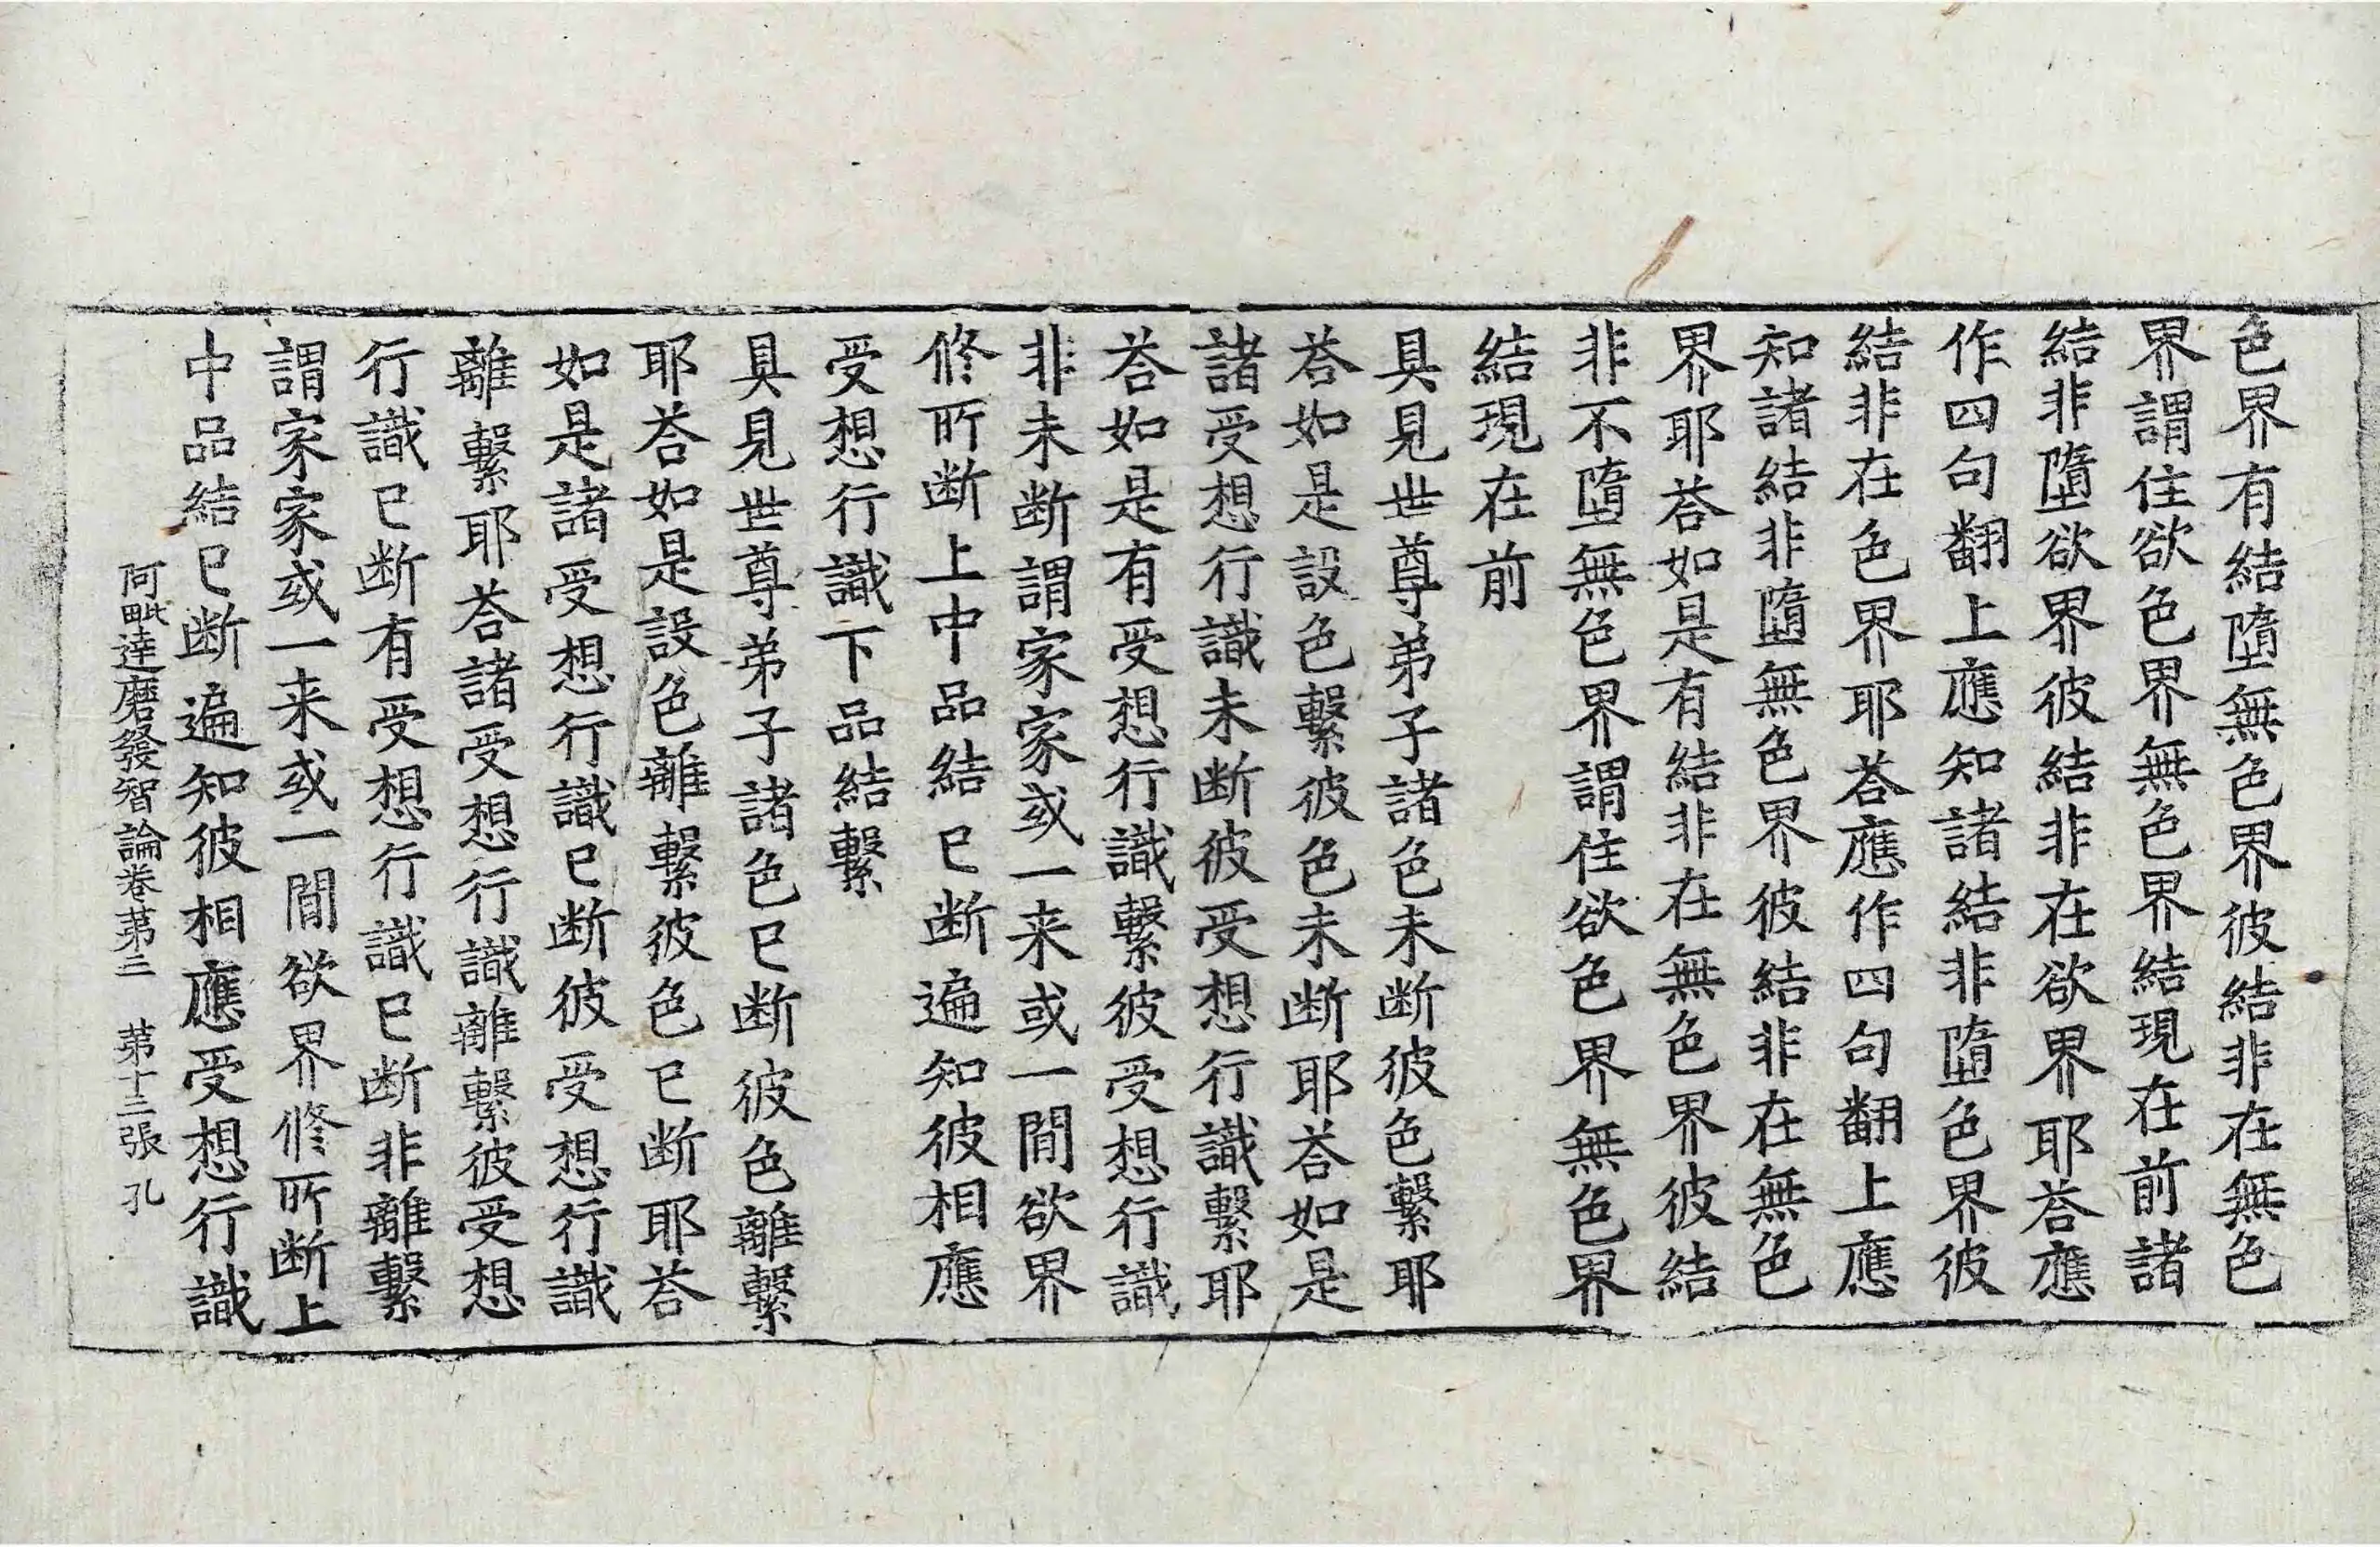 色界有結墮無色界彼結非在無色
界謂住欲色界無色界結現在前諸
結非墮欲界彼結非在欲界耶荅應
作四句翻上應知諸結非墮色界彼
結非在色界耶荅應作四句翻上應
知諸結非墮無色界彼結非在無色
界耶荅如是有結非在無色界彼結
非不墮無色界謂住欲色界無色界
結現在前
具見世尊弟子諸色未断彼色繫耶
荅如是設色繫彼色未断耶荅如是
諸受想行識未断彼受想行識繫耶
荅如是有受想行識繫彼受想行識
非未断謂家家或一来或一閒欲界
修所断上中品結已断遍知彼相應
受想行識下品結繫
具見世尊弟子諸色已断彼色離繫
耶荅如是設色離繫彼色已断耶荅
如是諸受想行識已断彼受想行識
離繫耶荅諸受想行識離繫彼受想
行識已断有受想行識已断非離繫
謂家家或一来或一閒欲界修所断上
中品結已断遍知彼相應受想行識
阿毗達磨發智論卷苐三　苐十三張　孔